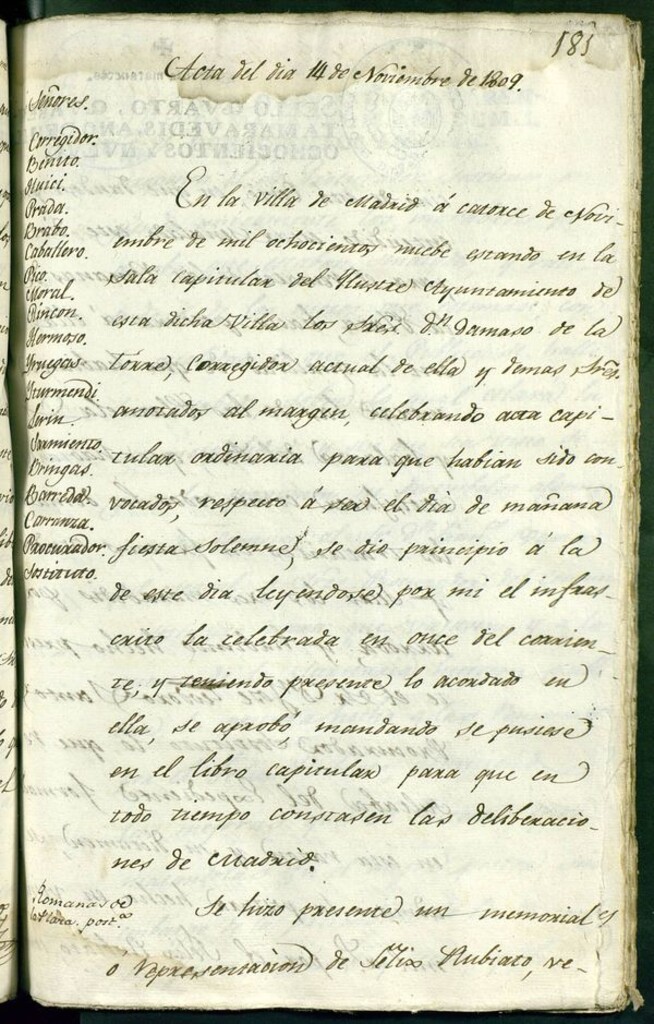 181
Acta del dia 14 de Noviembre de 1809.
Señores.
Corregidor.
Benito.
Huici.
Prada.
Brabo.
Caballero.
Pico.
Moral.
Rincon.
Hermoso.
Yruegas
Yturmendi
Serin.
Sarmiento.
Bringas.
Barreda.
Carranza.
Procurador
Sostituto.
En la villa de Madrid á catorce de Novi-
embre de mil ochocientos nuebe estando en la
sala capitular del Ylustre Ayuntamiento de
esta dicha Villa los Sres. Dn. Damaso de la
Torre, Corregidor actual de ella y demas Sres.
anotados al margen, celebrando acta capi-
tular ordinaria para que habian sido con-
vocados, respecto á ser el dia de mañana
fiesta solemne, se dio principio á la
de este dia leyendose por mi el infras-
crito la celebrada en once del corrien-
te, y teniendo presente lo acordado en
ella, se aprobó mandando se pusiese
en el libro capitular para que en
todo tiempo constasen las deliberacio-
nes de Madrid.
Romanas de
la Plaza. port.a
Se hizo presente un memorial
ó representacion de Felix Rubiato, ve-